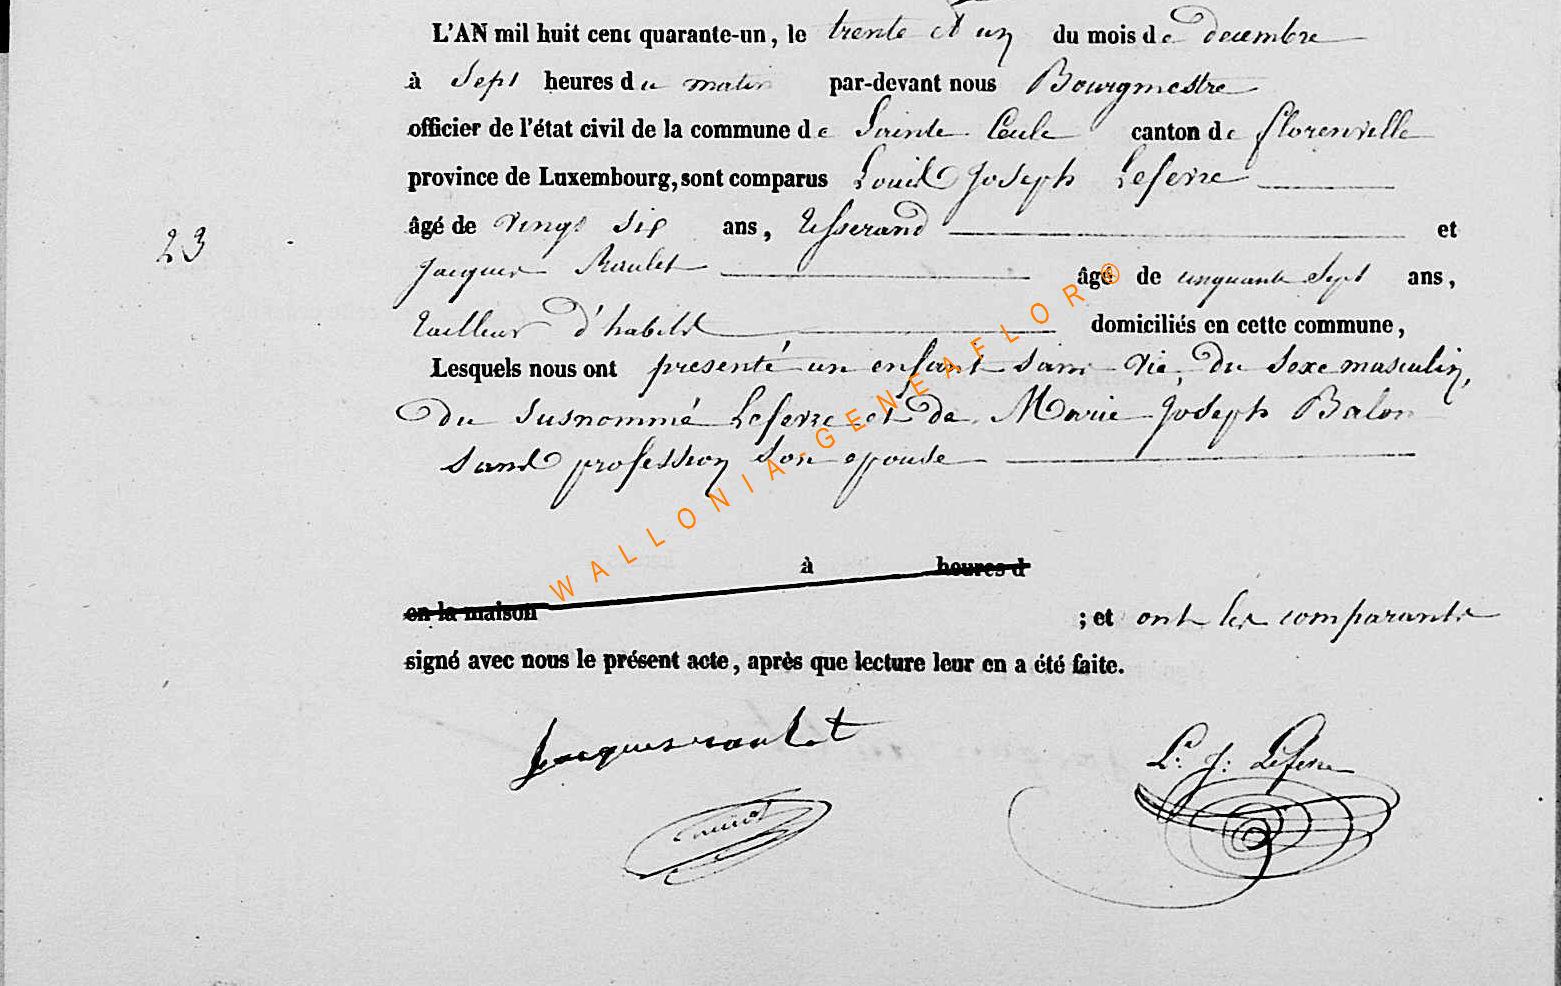 L'AN mil huit cent quarante-un, le trente et un du mois de decembre
à Sept heures du matin par-devant nous Bourgmestre
officier de l'état civil de la commune de Sainte Cecile canton de florenville
province de Luxembourg, sont comparus Louis Joseph Lefevre
23
âgé de vingt six ans, tisserand et
Jacques Raulet âgé de cinquante sept ans,
tailleur d'habits domiciliés en cette commune,
Lesquels nous ont presenté un enfant sans vie, du Sexe masculin,
du susnommé Lefevre et de Marie Joseph Balon
sans profession son epouse
à heures d
en la maison ; et ont les comparants
signé avec nous le présent acte, après que lecture leur en a été faite.
Jacques raulet
L. J: Lefevre
WALLONIA-GENEAFLOR®